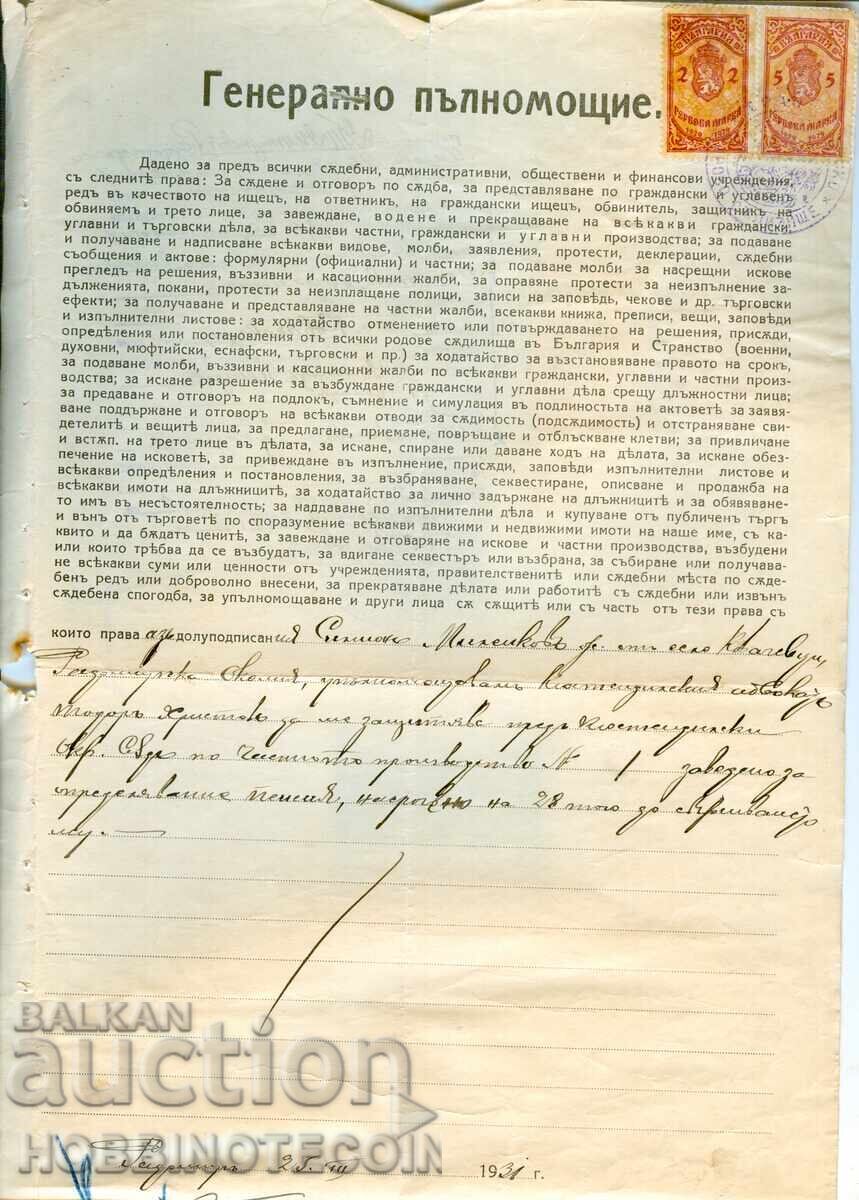 БЪЛГАРИЯ БЪЛГАРИЯ
2 2 5 5
ГЕРБОВА МАРКА ГЕРБОВА МАРКА
Генерално пълномощие.
Дадено за предъ всички сѫдебни, административни, обществени и финансови учреждения,
съ следнитѣ права: За сѫдене и отговоръ по сѫдба, за представляване по граждански и углавенъ
редъ въ качеството на ищецъ, на ответникъ, на граждански ищецъ, обвинитель, защитникъ на
обвиняемъ и трето лице, за завеждане, водене и прекращаване на всѣкакви граждански,
углавни и търговски дѣла, за всѣкакви частни, граждански и углавни производства; за подаване
и получаване и надписване всѣкакви видове, молби, заявления, протести, декларации, сѫдебни
съобщения и актове: формулярни (официални) и частни; за подаване молби за насрещни искове
прегледъ на решения, въззивни и касационни жалби, за оправяне протести за неизпълнение за-
дълженията, покани, протести за неизплащане полици, записи на заповѣдь, чекове и др. търговски
ефекти; за получаване и представляване на частни жалби, всекакви книжа, преписи, вещи, заповѣди
и изпълнителни листове: за ходатайство отменението или потвърждаването на решения, присѫди,
опредѣления или постановления отъ всички родове сѫдилища въ България и Странство (военни,
духовни, мюфтийски, еснафски, търговски и пр.) за ходатайство за възстановяване правото на срокъ,
за подаване молби, въззивни и касационни жалби по всѣкакви граждански, углавни и частни произ-
водства; за искане разрешение за възбуждане граждански и углавни дѣла срещу длъжностни лица;
за предаване и отговоръ на подлокъ, съмнение и симулация въ подлиностьта на актоветѣ за заявя-
ване поддържане и отговоръ на всѣкакви отводи за сѫдимость (подсѫдимость) и отстраняване сви-
детелитѣ и вещитѣ лица, за предлагане, приемане, повръщане и отблъскване клетви; за привличане
и встѫп. на трето лице въ дѣлата, за искане, спиране или даване ходъ на дѣлата, за искане обез-
печение на исковетѣ, за привеждане въ изпълнение, присѫди, заповѣди изпълнителни листове и
всѣкакви опредѣления и постановления, за възбраняване, секвестиране, описване и продажба на
всѣкакви имоти на длъжницитѣ, за ходатайство за лично задържане на длъжницитѣ и за обявяване-
то имъ въ несъстоятелность; за наддаване по изпълнителни дѣла и купуване отъ публиченъ търгъ
и вънъ отъ търговетѣ по споразумение всѣкакви движими и недвижими имоти на наше име, съ ка-
квито и да бѫдатъ ценитѣ, за завеждане и отговаряне на искове и частни производства, възбудени
или които трѣбва да се възбудатъ, за вдигане секвестъръ или възбрана, за събиране или получава-
не всѣкакви суми или ценности отъ учрежденията, правителственитѣ или сѫдебни мѣста по сѫде-
бенъ редъ или доброволно внесени, за прекратяване дѣлата или работитѣ съ сѫдебни или извънъ
сѫдебена спогодба, за упълномощаване и други лица сѫ сѫщитѣ или съ часть отъ тези права съ
които права азъ долуподписания Симионъ отъ село
Радомирска околия, упълномощавамъ Кюстендилския адвокатъ
Тодоръ Христовъ да ме защитява предъ Кюстендилски
Окр. Сѫдъ по частното производство № 1 заведено за
определяване пенсия, насрочено на 28 того до свършването
му.—
BALKAN
auction
HOBBINOTECOM
Радомиръ 25. III 1931 г.